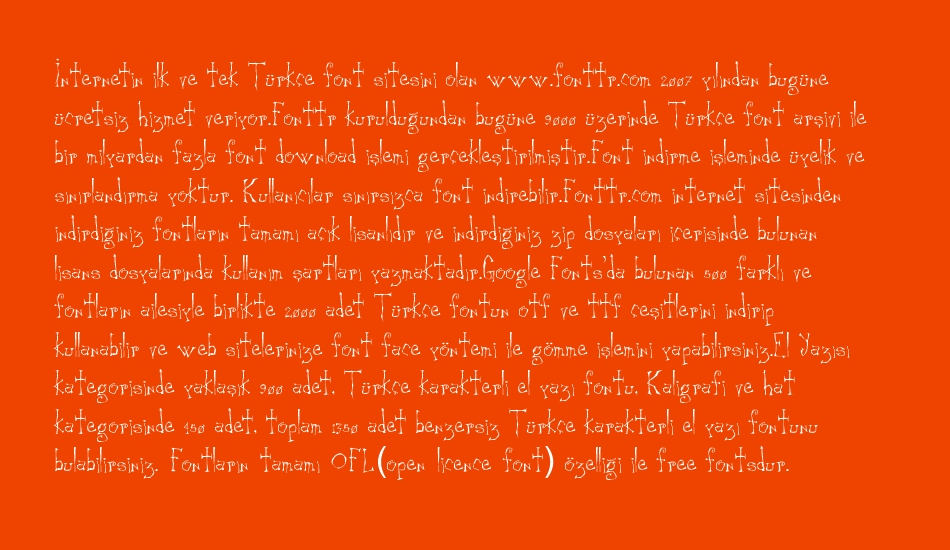 İnternetin ilk ve tek Türkçe font sitesini olan www.fonttr.com 2007 yılından bugüne
ücretsiz hizmet veriyor.Fonttr kurulduğundan bugüne 9000 üzerinde Türkçe font arşivi ile
bir milyardan fazla font download işlemi gerçekleştirilmiştir.Font indirme işleminde üyelik ve
sınırlandırma yoktur. Kullanıcılar sınırsızca font indirebilir.Fonttr.com internet sitesinden
indirdiğiniz fontların tamamı açık lisanlıdır ve indirdiğiniz zip dosyaları içerisinde bulunan
lisans dosyalarında kullanım şartları yazmaktadır.Google Fonts'da bulunan 500 farklı ve
fontların ailesiyle birlikte 2000 adet Türkçe fontun otf ve ttf çeşitlerini indirip
kullanabilir ve web sitelerinize font face yöntemi ile gömme işlemini yapabilirsiniz.El Yazısı
kategorisinde yaklaşık 900 adet, Türkçe karakterli el yazı fontu, Kaligrafi ve hat
kategorisinde 450 adet, toplam 1350 adet benzersiz Türkçe karakterli el yazı fontunu
bulabilirsiniz. Fontların tamamı OFL(open licence font) özelliği ile free fontsdur.